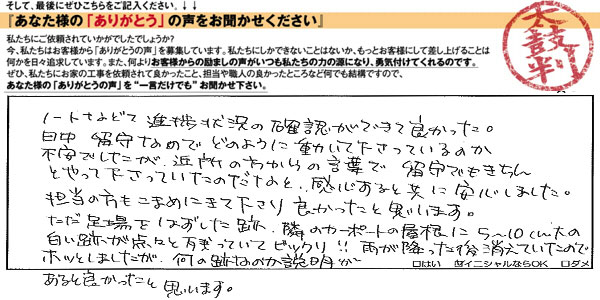 そして、最後にぜひこちらをご記入ください。↓↓
『あなた様の「ありがとう」の声をお聞かせください』
私たちにご依頼されていかがでしたでしょうか?
今、私たちはお客様から「ありがとうの声」を募集しています。私たちにしかできないことはないか、もっとお客様にして差し上げることは
何かを日々追求しています。また、何よりお客様からの励ましの声がいつも私たちの力の源になり、勇気付けてくれるのです。
ぜひ、私たちにお家の工事を依頼されて良かったこと、担当や職人の良かったところなど何でも結構ですので、
あなた様の「ありがとうの声」を"一言だけでも"お聞かせ下さい。
太鼓判
ノートなどで進捗状況の確認ができて良かった。
日中 留守なのでどのように動いて下さっているのか
不安でしたが、近所の方からの言葉で 留守でもきちん
とやって下さっていたのだなと、感心すると共に安心しました。
担当の方もこまめにきて下さり良かったと思います。
ただ足場をはずした跡、隣のカーポートの屋根に5〜10cm大の
白い跡が点々と残っていてビックリ!!雨が降った後消えていたので
ホッとしましたが、何の跡なのか説明が
□はい ☑イニシャルならOK □ダメ
あると良かったと思います。